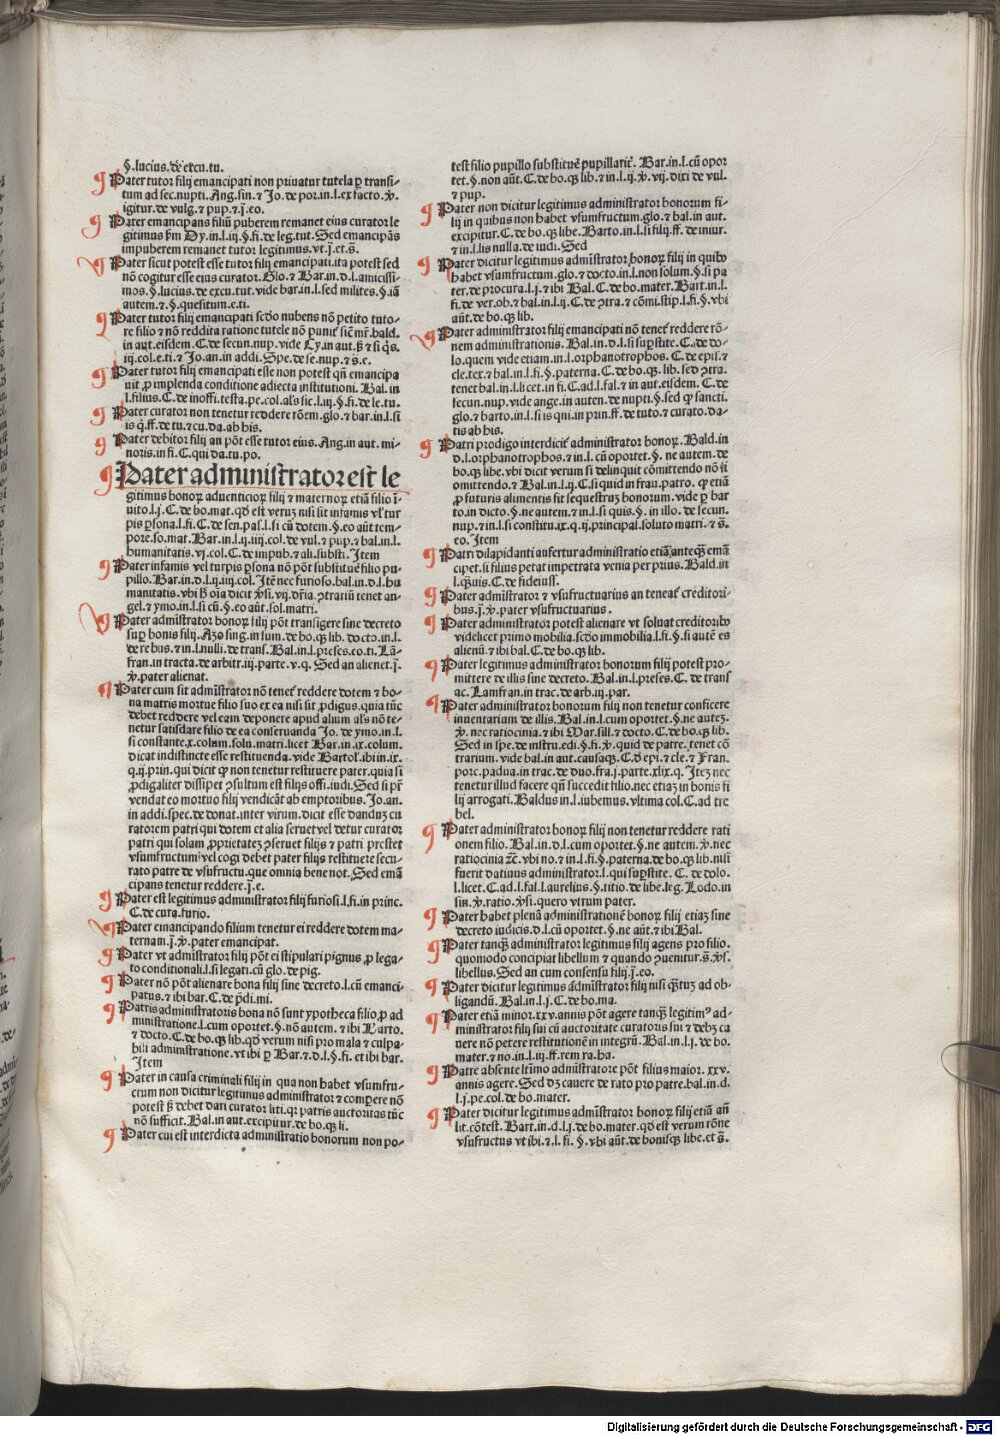 §. lucius. de excu. tu.
Pater tutor filij emancipati non priuatur tutela ꝑ transi-
tum ad sec. nupti. Ang. sin. ⁊ Jo. de por. in. l. ex facto. ℣.
igitur. de vulg. ⁊ pup. ⁊ j̄. eo.
Pater emancipans filiū puberem remanet eius curator le
gitimus ẜm Dy. in. l. iij. §. fi. de leg. tut. Sed emancipās
impuberem remanet tutor legitimus. vt. j̄. et. s̄.
Pater sicut potest esse tutor filij emancipati. ita potest sed
nō cogitur esse eius curator. Glo. ⁊ Bar. in. d. l. amicissi-
mos. §. lucius. de excu. tut. vide bar. in. l. sed milites. §. iā
autem. ⁊. §. quesitum. e. ti.
Pater tutor filij emancipati scd̄o nubens nō petito tuto-
re filio ⁊ nō reddita ratione tutele nō punit̄ sic̄ mr̄. bald.
in aut. eisdem. C. de secun. nup. vide Cy. in aut. ꝓ ⁊ si q̄s.
iij. col. e. ti. ⁊ Jo. an. in addi. Spe. de se. nup. ⁊ s̄. e.
Pater tutor filij emancipati esse non potest qn̄ emancipa
uit ꝓ implenda conditione adiecta institutioni. Bal. in
l. filius. C. de inoffi. testa. pe. col. als̄ sic. l. iij. §. fi. de le. tu.
Pater curator non tenetur reddere rōem. glo. ⁊ bar. in. l. si
is q̄. ff. de tu. ⁊ cu. da. ab his.
Pater debitor filij an pōt esse tutor eius. Ang. in aut. mi-
noris. in fi. C. qui da. tu. po.
Pater administrator est le
gitimus honoꝝ aduenticioꝝ filij ⁊ maternoꝝ etiā filio ī
uito. l. j. C. de bo. mat. qd̄ est verum nisi sit infamis vl̄ tur
pis ꝑsona. l. fi. C. de sen. pas. l. si cū dotem. §. eo aūt tem-
pore. so. mat. Bar. in. l. ij. iiij. col. de vul. ⁊ pup. ⁊ bal. in. l.
humanitatis. vj. col. C. de impub. ⁊ ali. substi. Item
Pater infamis vel turpis ꝑsona nō pōt substituē filio pu-
pillo. Bar. in. d. l. ij. iiij. col. Itē nec furioso. bal. in. d. l. hu
manitatis. vbi ꝓ oīa dicit ℣si. vij. dr̄ia. ꝯtrariū tenet an-
gel. ⁊ ymo. in. l. si cū. §. eo aūt. sol. matri.
Pater admistrator honoꝝ filij pōt transigere sine decreto
suꝑ bonis filij. Azo sing. in sum. de bo. q̄ lib. docto. in. l.
de rebus. ⁊ in. l. nulli. de trans. Bal. in. l. preses. eo. ti. Lā-
fran. in tracta. de arbitr. iij. parte. v. q. Sed an alienet. j̄.
℣. pater alienat.
Pater cum sit admīstrator nō tenet̄ reddere dotem ⁊ bo-
na matris mortue filio suo ex ea nisi sit ꝓdigus. quia tūc
debet reddere vel eam deponere apud alium als̄ nō te-
netur satisdare filio de ea conseruanda Jo. de ymo. in. l.
si constante. x. colum. solu. matri. licet Bar. in. ix. colum.
dicat indistincte esse restituenda. vide Bartol̄. ibi in. ix.
q. ij. prin. qui dicit ꝙ non tenetur restituere pater. quia si
ꝓdigaliter dissipet ꝯsultum est filijs offi. iudi. Sed si pr̄
vendat eo mortuo filij vendicāt ab emptoribus. Jo. an.
in addi. spec. de donat. inter virum. dicit esse dandum cu
ratorem patri qui dotem et alia seruet vel detur curator
patri qui solam ꝓprietatem ꝯseruet filijs ⁊ patri prestet
vsumfructum vel cogi debet pater filijs restituere secu-
rato patre de vsufructu. que omnia bene not. Sed emā
cipans tenetur reddere. j̄. e.
Pater est legitimus administrator filij furiosi. l. fi. in princ.
C. de cura. furio.
Pater emancipando filium tenetur ei reddere dotem ma-
ternam. j̄. ℣. pater emancipat.
Pater vt admīstrator filij pōt ei stipulari pignus ꝓ lega-
to conditionali. l. si legati. cū glo. de pig.
Pater nō pōt alienare bona filij sine decreto. l. cū emanci-
patus. ⁊ ibi bar. C. de p̄di. mi.
Patris administratoris bona nō sunt ypotheca filio ꝓ ad
ministratione. l. cum oportet. §. nō autem. ⁊ ibi Barto.
⁊ docto. C. de bo. q̄ lib. qd̄ verum nisi pro mala ⁊ culpa-
bili administratione. vt ibi ꝑ Bar. ⁊. d. l. §. fi. et ibi bar.
Item
Pater in causa criminali filij in qua non habet vsumfru-
ctum non dicitur legitimus administrator ⁊ compere nō
potest ꝓ debet dari curator liti. q̄ patris auctoritas tūc
nō sufficit. Bal. in aut. excipitur. de bo. q̄ li.
Pater cui est interdicta administratio bonorum non po-
test filio pupillo substituē pupillarit̄. Bar. in. l. cū opor
tet. §. non aūt. C. de bo. q̄ lib. ⁊ in. l. ij. ℣. vij. dixi de vul.
⁊ pup.
Pater non dicitur legitimus administrator bonorum fi-
lij in quibus non habet vsumfructum. glo. ⁊ bal. in aut.
excipitur. C. de bo. q̄ libe. Barto. in. l. si filij. ff. de iniur.
⁊ in. l. lis nulla. de iudi. Sed
Pater dicitur legitimus admīstrator honoꝝ filij in quibꝰ
habet vsumfructum. glo. ⁊ docto. in. l. non solum. §. si pa
ter. de procura. l. j. ⁊ ibi Bal. C. de bo. mater. Bart. in. l.
fi. de ver. ob. ⁊ bal. in. l. ij. C. de ꝯtra. ⁊ cōmi. stip. l. fi. §. vbi
aūt. de bo. q̄ lib.
Pater administrator filij emancipati nō tenet̄ reddere rō-
nem administrationis. Bal. in. d. l. si suꝑstite. C. de do-
lo. quem vide etiam. in. l. orphanotrophos. C. de epis. ⁊
cle. tex. ⁊ bal. in. l. fi. §. paterna. C. de bo. q̄. lib. sed ꝯtra.
tenet bal. in. l. licet. in fi. C. ad. l. fal. ⁊ in aut. eisdem. C. de
secun. nup. vide ange. in auten. de nupti. §. sed ꝙ sancti.
glo. ⁊ barto. in. l. si is qui. in prin. ff. de tuto. ⁊ curato. da-
tis ab his.
Patri prodigo interdicit̄ administratio honoꝝ. Bald. in
d. l. orphanotrophos. ⁊ in. l. cū oportet. §. ne autem. de
bo. q̄ libe. vbi dicit verum si delinquit cōmittendo nō sī
omittendo. ⁊ Bal. in. l. ij. C. si quid in frau. patro. ꝙ etiā
ꝓ futuris alimentis fit sequestrum bonorum. vide ꝑ bar
to. in dicto. §. ne autem. ⁊ in. l. si quis. §. in illo. de secun.
nup. ⁊ in. l. si constitu. ix. q. ij. principal. soluto matri. ⁊ s̄.
eo. Item
Patri dilapidanti aufertur administratio etiā anteq̄ emā
cipet. si filius petat impetrata venia per prius. Bald. in
l. q̄uis. C. de fideiuss.
Pater admīstrator ⁊ vsufructuarius an teneat̄ creditori-
bus. j̄. ℣. pater vsufructuarius.
Pater administrator potest alienare vt soluat creditoribꝰ
videlicet primo mobilia. scd̄o immobilia. l. fi. §. si autē es
alienū. ⁊ ibi bal. C. de bo. q̄ lib.
Pater legitimus administrator bonorum filij potest pro-
mittere de illis sine decreto. Bal. in. l. preses. C. de trans
ac. Lamfran. in trac. de arb. iij. par.
Pater administrator bonorum filij non tenetur conficere
inuentarium de illis. Bal. in. l. cum oportet. §. ne autem.
℣. nec ratiocinia. ⁊ ibi Mar. sill. ⁊ docto. C. de bo. q̄ lib.
Sed in spe. de instru. edi. §. fi. ℣. quid de patre. tenet con
trarium. vide bal. in aut. causaꝝ. C. d̄ epi. ⁊ cle. ⁊ Fran.
porc. padua. in trac. de duo. fra. j. parte. xlix. q. Item nec
tenetur illud facere qn̄ succedit filio. nec etiam in bonis fi
lij arrogati. Baldus in. l. iubemus. vltima col. C. ad tre
bel.
Pater administrator honoꝝ filij non tenetur reddere rati
onem filio. Bal. in. d. l. cum oportet. §. ne autem. ℣. nec
ratiocinia ⁊c̄. vbi no. ⁊ in. l. fi. §. paterna. de bo. q̄ lib. nisi
fuerit datiuus administrator. l. qui suꝑstite. C. de dolo.
l. licet. C. ad. l. fal. l. aurelius. §. titio. de libe. leg. Lodo. in
sin. ℣. ratio. ℣si. quero vtrum pater.
Pater habet plenā administrationē honoꝝ filij etiam sine
decreto iudicis. d. l. cū oportet. §. ne aūt. ⁊ ibi Bal.
Pater tanq̄ administrator legitimus filij agens pro filio.
quomodo concipiat libellum ⁊ quando ꝯuenitur. s̄. ℣si.
libellus. Sed an cum consensu filij. j̄. eo.
Pater dicitur legitimus admīstrator filij nisi q̄tum ad ob-
ligandū. Bal. in. l. j. C. de bo. ma.
Pater etiā minor. xxv. annis pōt agere tanq̄ legitimꝰ ad-
ministrator filij sui cū auctoritate curatoris sui ⁊ debet ca
uere nō petere restitutionē in integrū. Bal. in. l. j. de bo.
mater. ⁊ no. in. l. iij. ff. rem ra. ha.
Patre absente ltīmo admīstratore pōt filius maior. xxv.
annis agere. Sed dꝫ cauere de rato pro patre. bal. in. d.
l. j. pe. col. de bo. mater.
Pater dicitur legitimus admīstrator honoꝝ filij etiā an̄
lit. cōtest. Bart. in. d. l. j. de bo. mater. qd̄ est verum rōne
vsufructus vt ibi. ⁊. l. fi. §. vbi aūt. de bonisq̄ libe. et s̄.
Digitalisierung gefördert durch die Deutsche Forschungsgemeinschaft - DFG